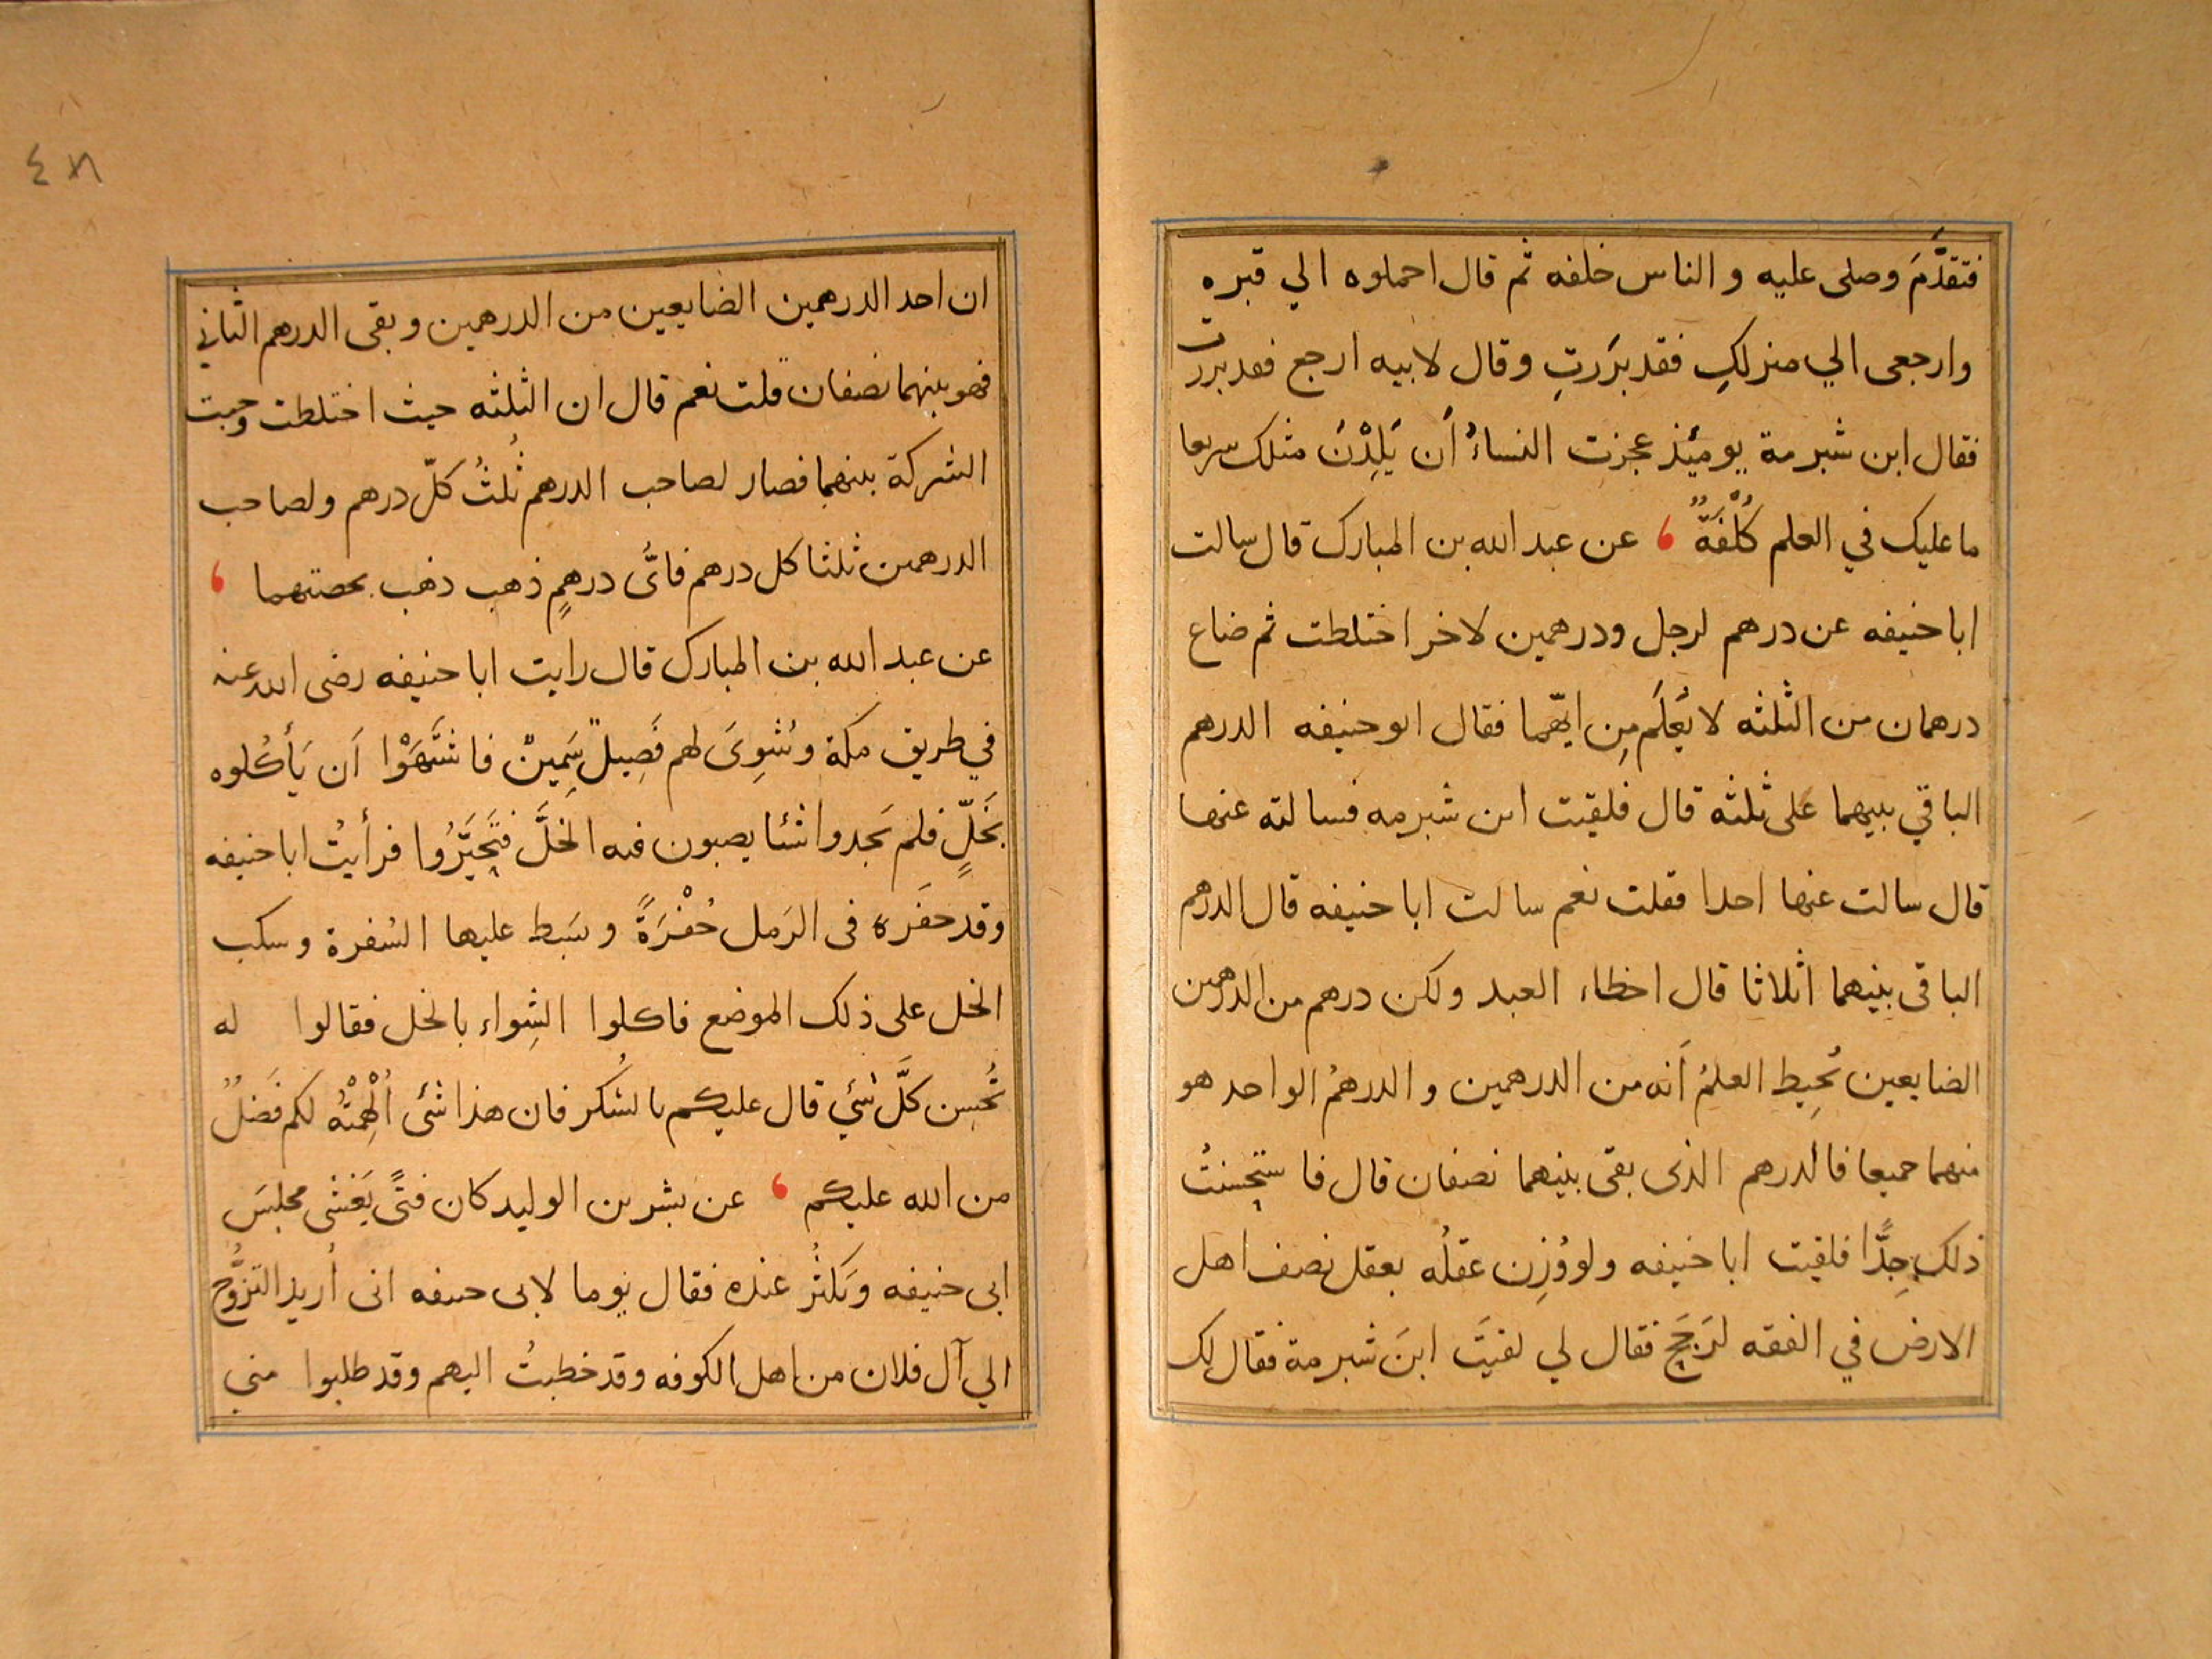 فتقدَّمَ وصلى عليه و الناس خلفه ثم قال احملوه الي قبره
وارجعى الي منزلكِ فقد بَرَرتِ وقال لابيه ارجع فقد بررت
فقال ابن شبرمة يومئذ عجزت النساءُ أن يَلِدْنَ مثلك سريعا
ما عليك في العلم كُلْفَةٌ ، عن عبد الله بن المبارك قال سالت
ابا حنيفه عن درهم لرجل ودرهمين لاخر اختلطت ثم ضاع
درهمان من الثلثه لا يُعلَم مِن ايّهما فقال ابو حنيفه الدرهم
الباقي بينهما على ثلثه قال فلقيت ابن شبرمه فسالته عنها
قال سالت عنها احدا فقلت نعم سالت ابا حنيفه قال الدرهم
الباقى بينهما اثلاثا قال اخطاء العبد ولكن درهم من الدرهمين
الضايعين يُحِيط العلمُ أنه من الدرهمين والدرهمُ الواحد هو
منهما جميعا فالدرهم الذى بقى بينهما نصفان قال فاستحسنتُ
ذلك جِدًّا فلقيت ابا حنيفه ولو وُزِن عقلُه بعقل نصف اهل
الارض في الفقه لرَجَحَ فقال لي لقيتَ ابنَ شبرمة فقال لك
٤٨
ان احد الدرهمين الضايعين من الدرهمين وبقى الدرهم الثاني
فهو بينهما نصفان قلت نعم قال ان الثلثه حيث اختلطت وجبت
الشركة بينهما فصار لصاحب الدرهم ثُلثُ كلّ درهم ولصاحب
الدرهمين ثلثا كل درهم فاىُّ درهمٍ ذهب ذهب بحصتهما ،
عن عبد الله بن المبارك قال رايت ابا حنيفه رضى الله عنه
في طريق مكة وشُوِىَ لهم فَصِيلٌ سَمِينٌ فاشتَهَوْا اَن يَأكُلوه
بَخلٍّ فلم يَجدوا شئا يصبون فيه الخَلَّ فتَحَيَّرُوا فرأيتُ ابا حنيفه
وقد حفَره فى الرَمل حُفْرَةً وبَسَط عليها السُفرة وسكب
الخل على ذلك الموضع فاكلوا الشِواء بالخل فقالوا له
تُحسِن كلَّ شَئي قال عليكم بالشُكر فان هذا شئى اُلْهِمْتُه لكم فَضلٌ
من الله عليكم ، عن بشر بن الوليد كان فتًى يَغشى مجلِسَ
ابى حنيفه ويَكثُر عنده فقال يوما لابى حنيفه انى اُريد التزوُّج
الي آل فلان من اهل الكوفه وقد خطبتُ اليهم وقد طلبوا مني